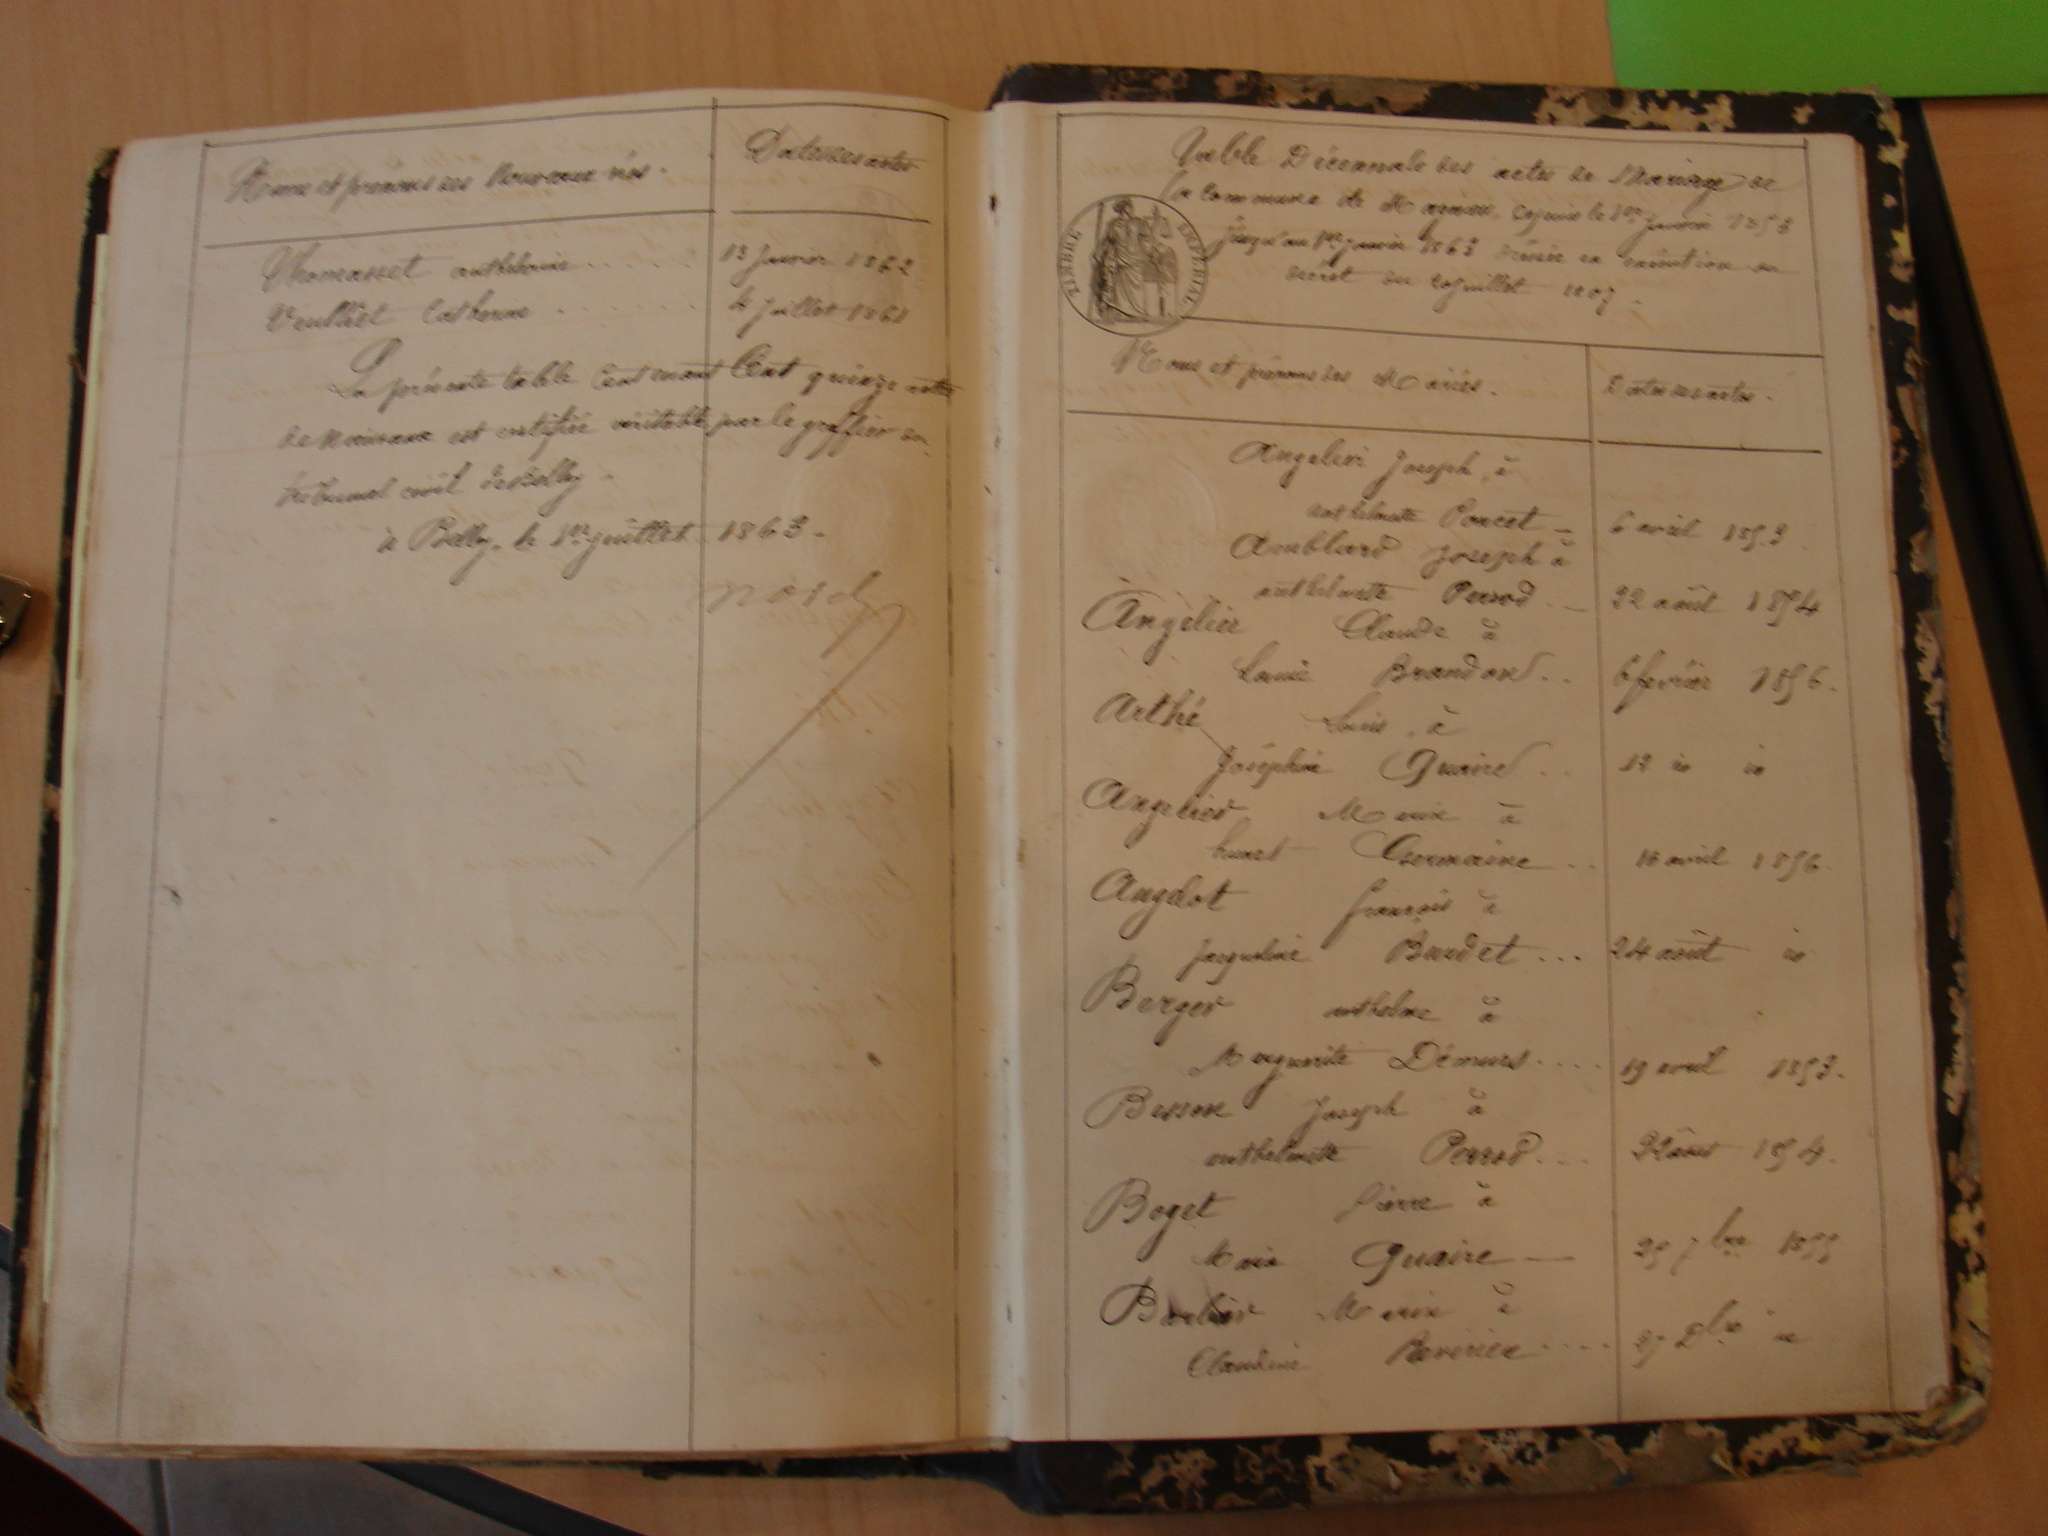 Noms et prénoms des Nouveaux nés.
Dates des actes
Thomasset anthelmie . . . . . . 13 Janvier 1862
Veuillet Catherine . . . . . . 4 Juillet 1861
La présente table Contenant Cent quinze actes
de Naissance est certifiée véritable par le greffier du
tribunal civil de Belley.
à Belley, le 1er juillet 1863.
Table Décennale des actes de Mariage de
la Commune de depuis le 1er Janvier 1853
jusqu'au 1er janvier 1863 dressée en exécution du
décret du 20 juillet 1807.
TIMBRE IMPERIAL
Noms et prénoms des Mariés.
Dates des actes.
Angelier Joseph, à
anthelmette Poncet _ 6 avril 1853
Amblard Joseph à
anthelmette Perrod _ 22 août 1854
Angelier Claude à
Louise Brandon . . 6 février 1856.
Arthé Louis, à
Joséphine Quaire . . 12 id id
Angelier Marie à
Germaine . . 16 avril 1856.
Angelot françois à
jacqueline Bardet . . . 24 août id
Berger anthelme à
Marguerite Démurs . . . . 19 avril 1853.
Besson Joseph à
anthelmette Perrod . . . 22 août 1854.
Boget Pierre à
Marie Quaire — 25 7bre 1855
Barbier Marie à
Claudine . . . . 27 id